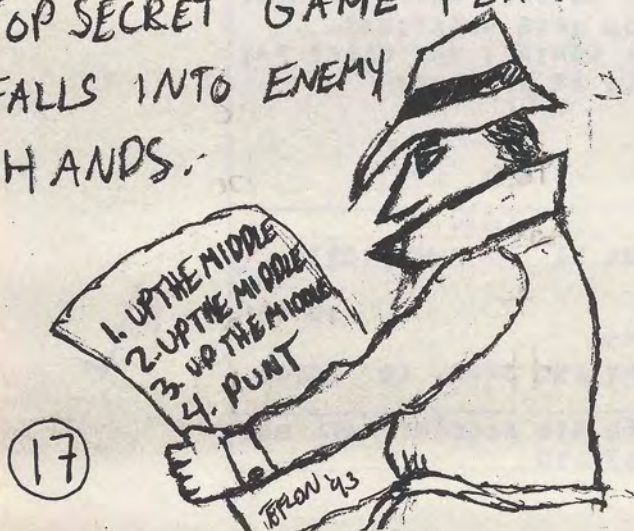 TOP SECRET GAME
FALLS INTO ENEMY
HANDS.
1. UP THE MIDDLE
2. UP THE MIDDLE
3. UP THE MIDDLE
4. PUNT
17
TEFLON '93